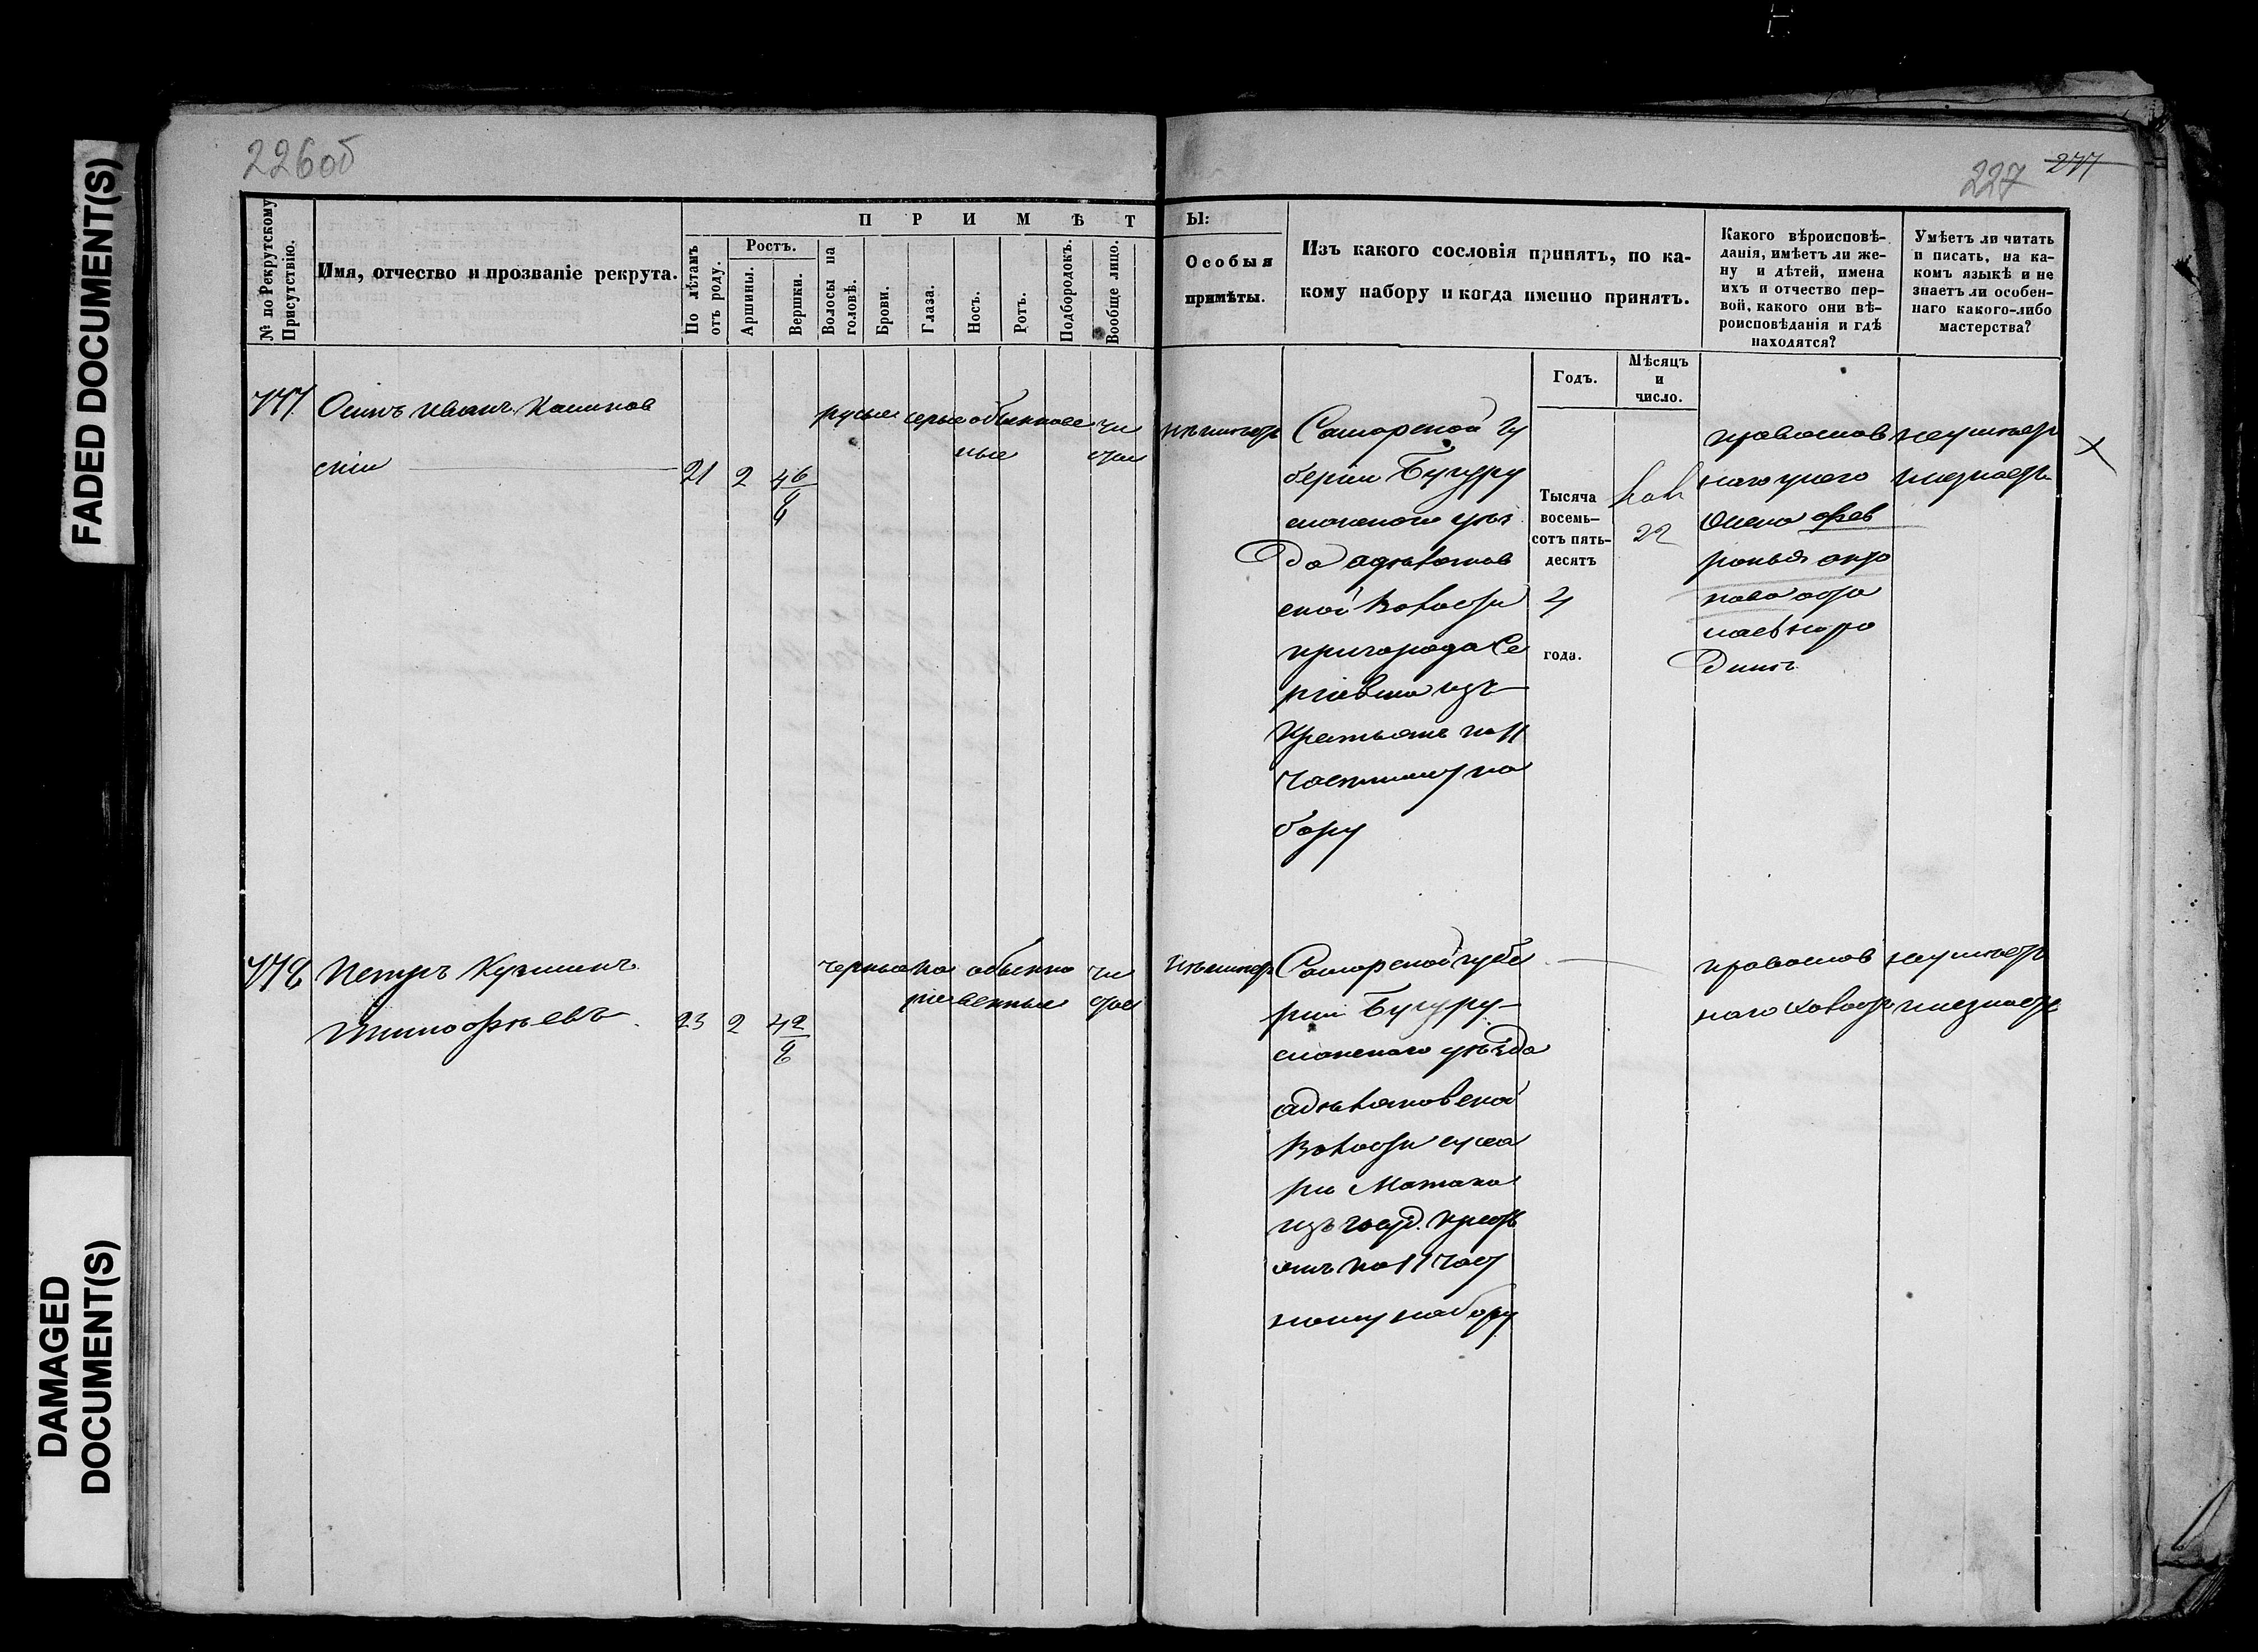 FADED DOCUMENT(S)
DAMAGED
DOCUMENT(S)
226об
227 277
№ по Рекрутскому
Присутствію.
Имя, отчество и прозваніе рекрута.
П Р И М Ѣ Т
Ы:
По лѣтамъ
отъ роду.
Ростъ.
Аршины.
Вершки.
Волосы на
головѣ.
Брови.
Глаза.
Носъ.
Ротъ.
Подбородокъ.
Вообще лицо.
Особыя
примѣты.
Изъ какого сословія принятъ, по ка-
кому набору и когда именно принятъ.
Какого вѣроисповѣ-
данія, имѣетъ ли же-
ну и дѣтей, имена
ихъ и отчество пер-
вой, какого они вѣ-
роисповѣданія и гдѣ
находятся?
Умѣетъ ли читать
и писать, на ка-
комъ языкѣ и не
знаетъ ли особен-
наго какого-либо
мастерства?
Годъ.
Мѣсяцъ
и
число.
777
Осипъ Иванъ Калинов
скій
21 2 4 6/8
русые сѣрые обыкновен
ные
чи
стое
Самарской гу
берніи Бугуру
сланскаго уѣз
да
ской волости
пригорода Се
ргіевска изъ
крестьянъ по 11
частному на
бору
Тысяча
восемь-
сотъ пять-
десятъ
4
года.
22
православ
наго у него
жена Фев
ронья
на родинѣ
неумѣетъ
и незнаетъ
778
Петръ Кузминъ
Тимофѣевъ
23 2 4 2/8
черные ка
ріе
обыкно
венные
чи
стое
Самарской губе
рніи Бугуру-
сланскаго уѣзда
волости
изъ госуд. крестъ
янъ по 11 част
ному набору
православ
наго холостъ
неумѣетъ
и незнаетъ